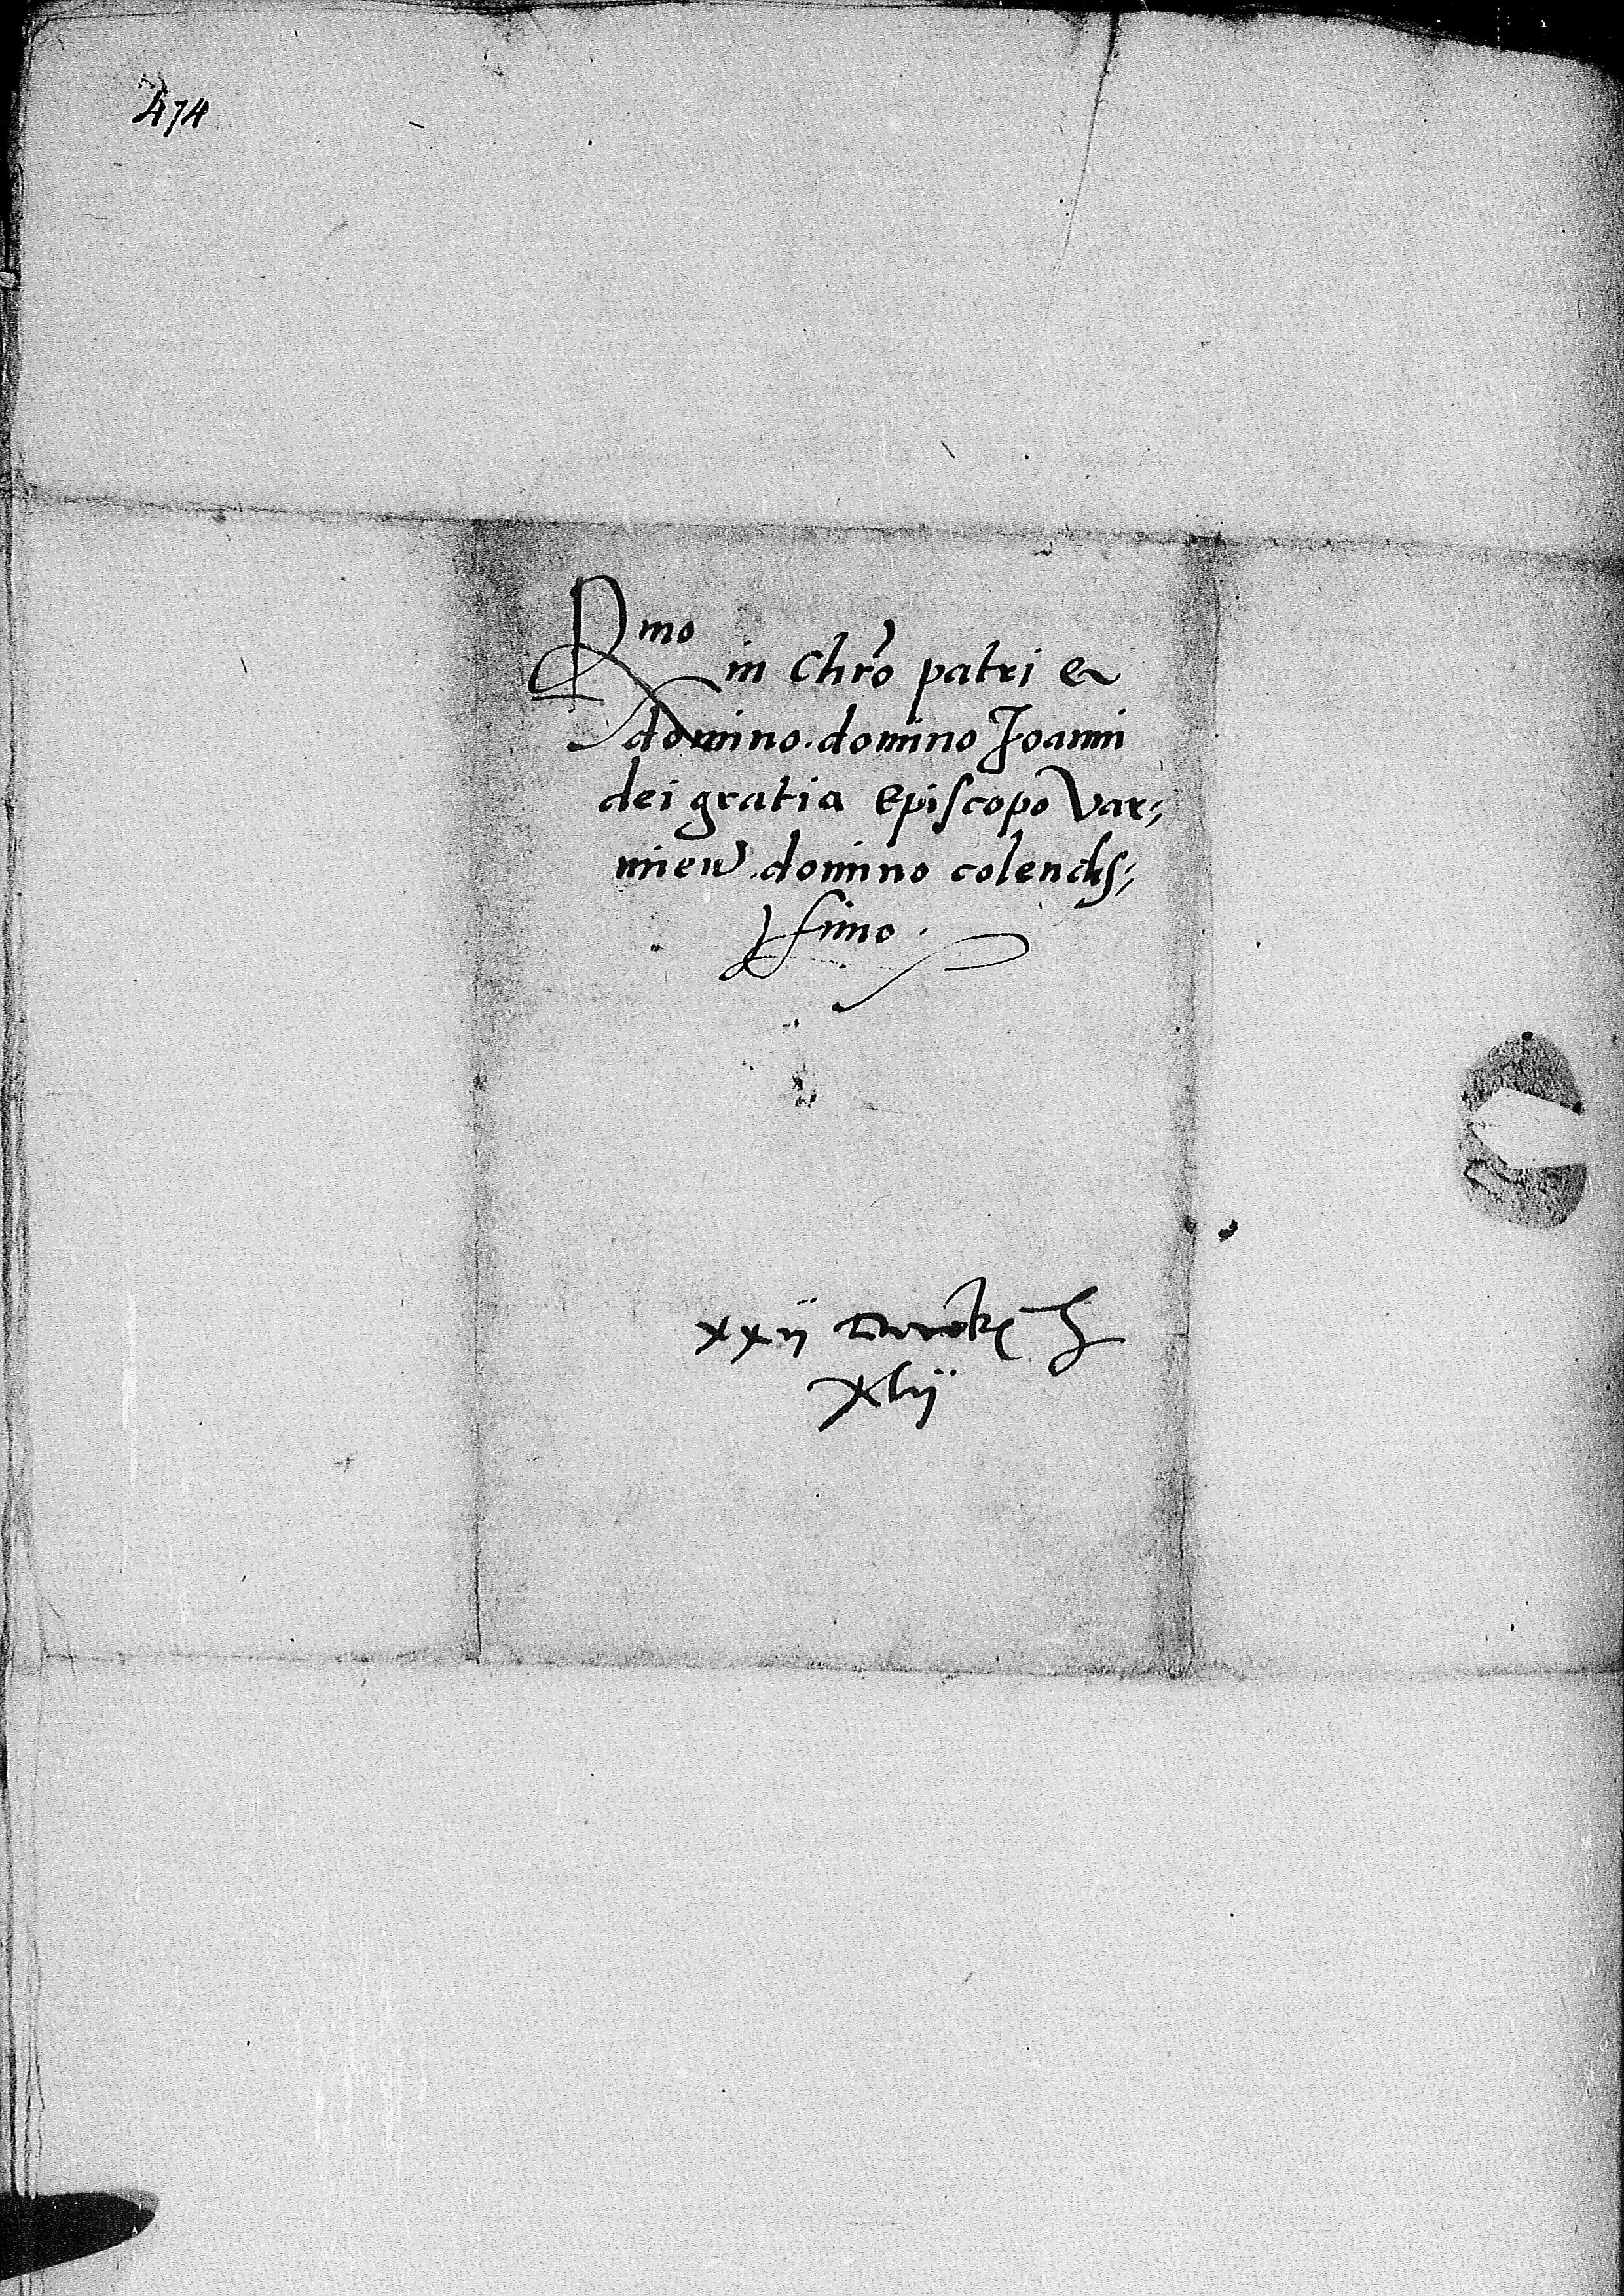 474
Rmo
in Chro patri et
domino. domino Joanni
dei gratia Episcopo Var-
mien. domino colendis-
simo.
xxij
xlij